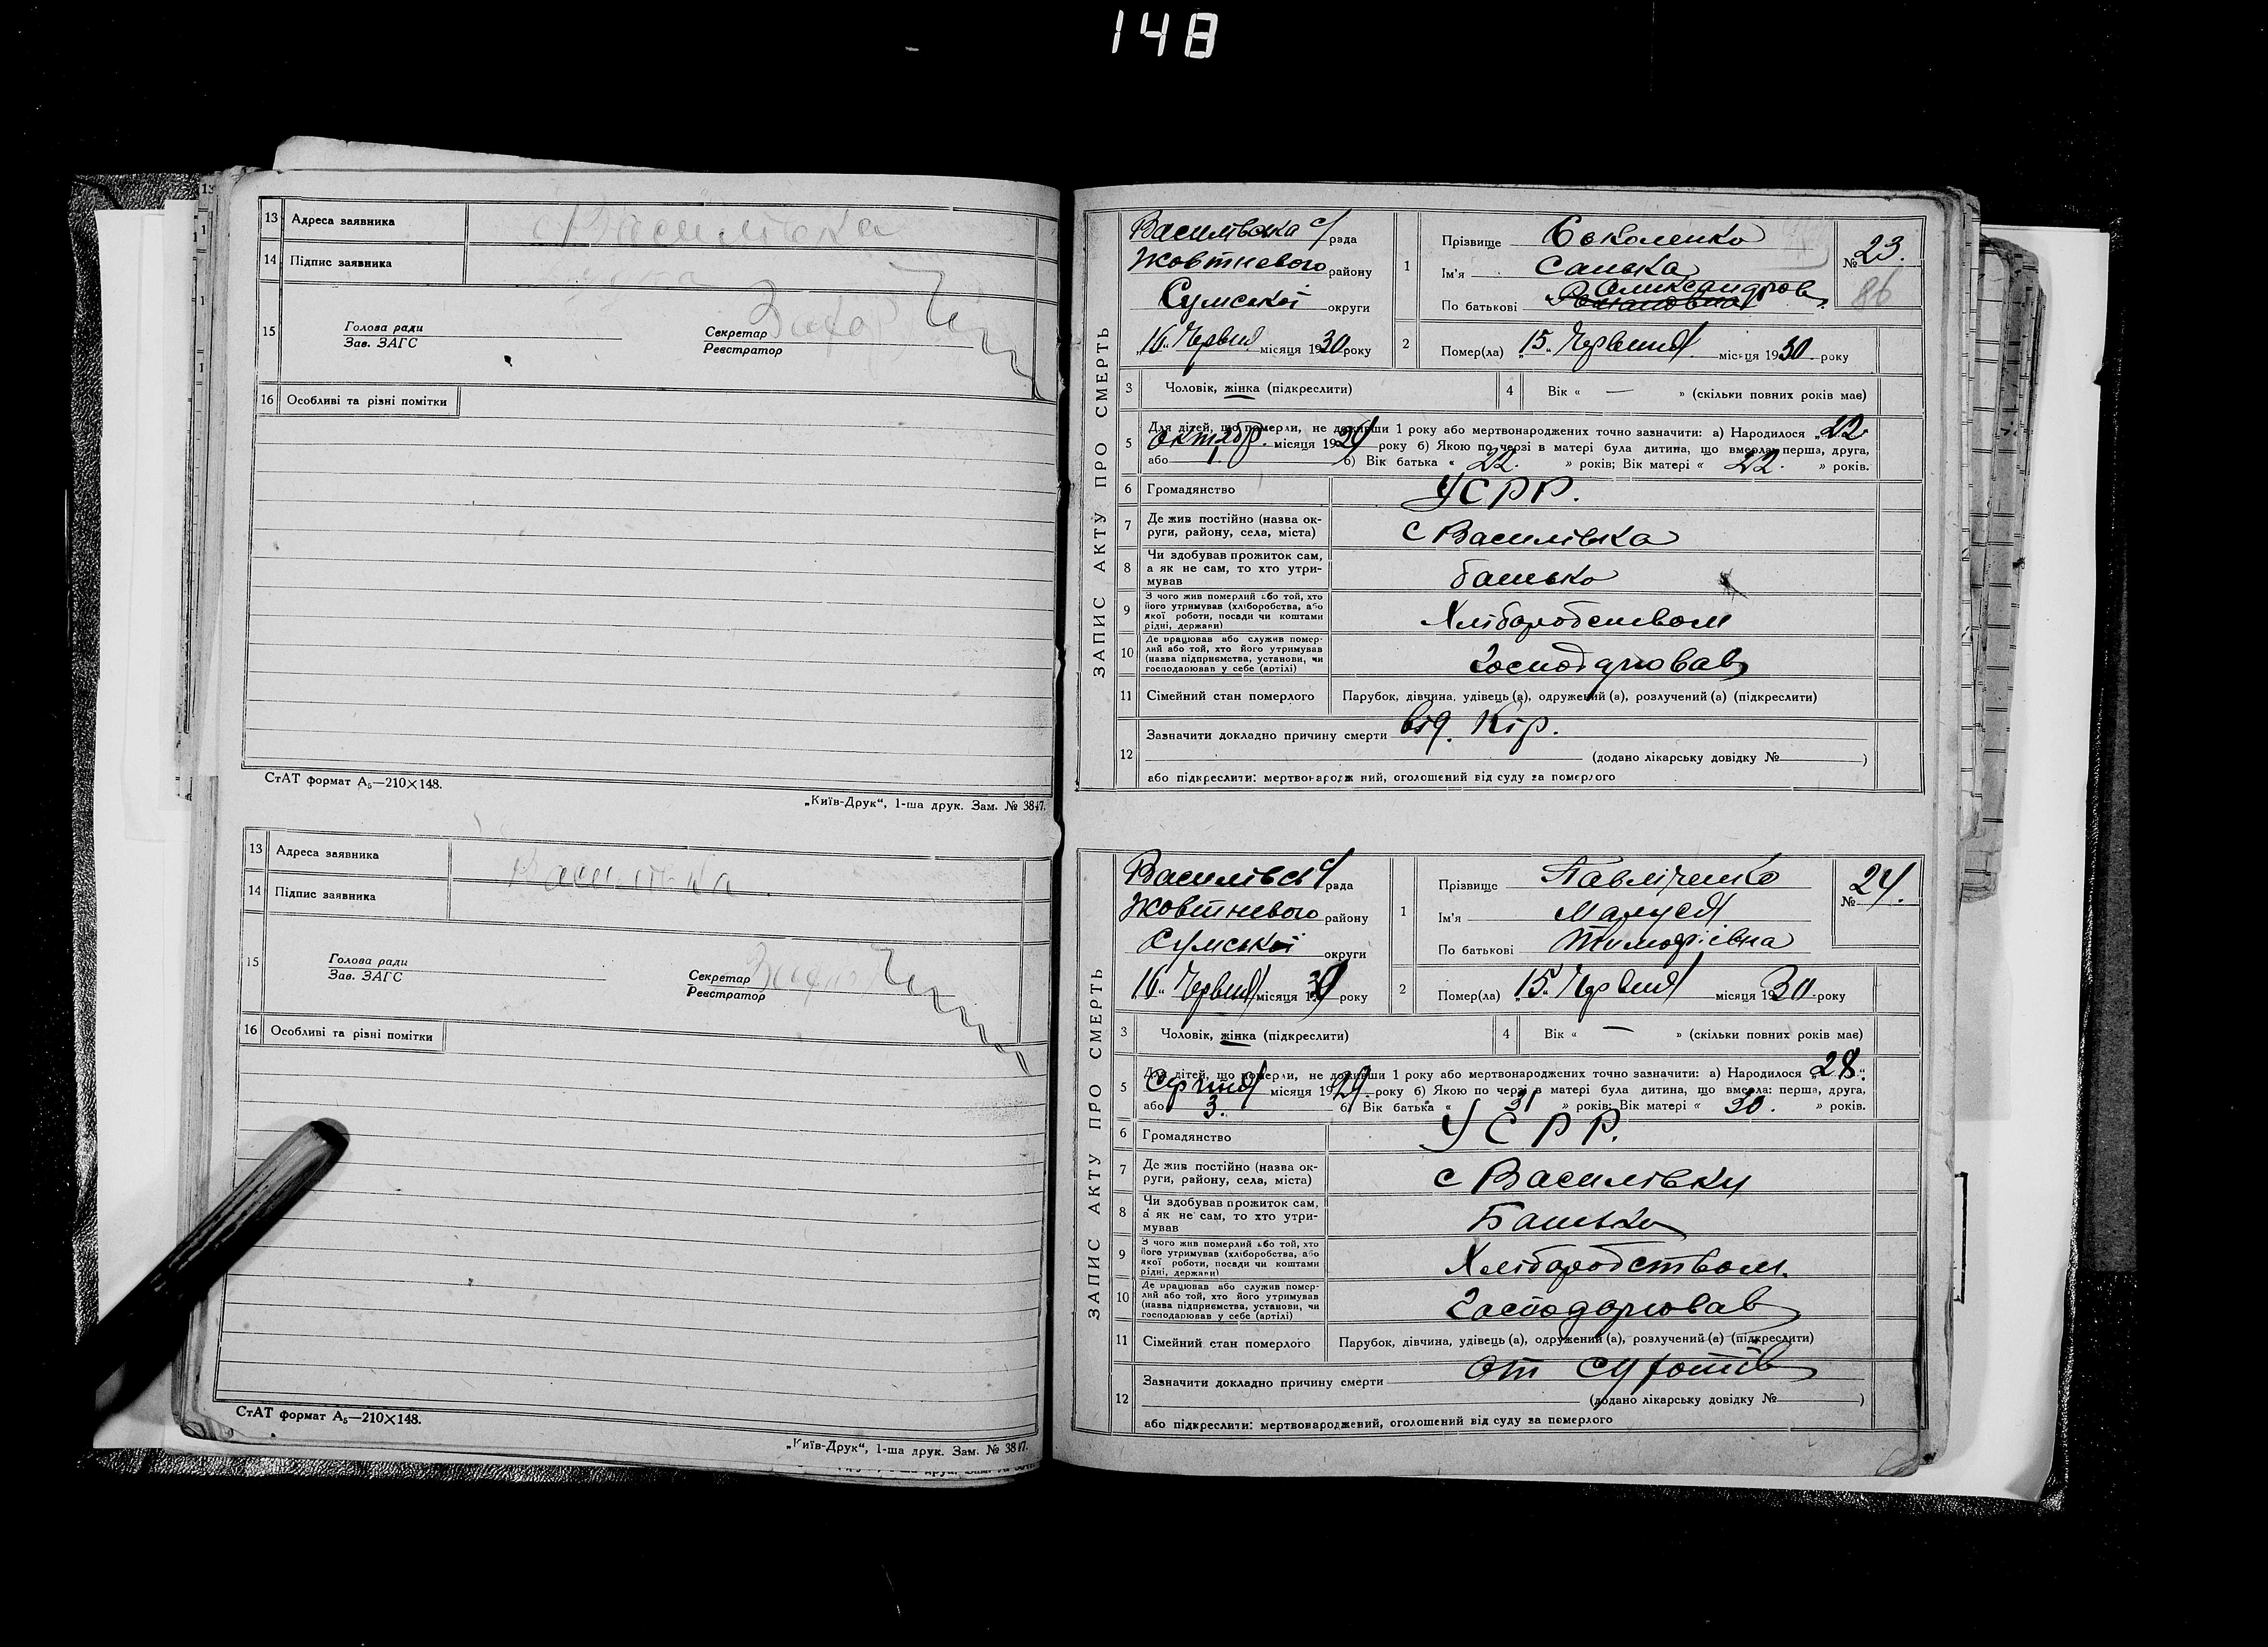 148
13 Адреса заявника с Василівка
14 Підпис заявника
15 Голова ради
Зав. ЗАГС
Секретар
Реєстратор
16 Особливі та різні помітки
СтАТ формат А₅—210×148.
„Київ-Друк“, 1-ша друк. Зам. № 3847.
13 Адреса заявника Василівка
14 Підпис заявника
15 Голова ради
Зав. ЗАГС
Секретар
Реєстратор
16 Особливі та різні помітки
СтАТ формат А₅—210×148.
„Київ-Друк“, 1-ша друк. Зам. № 3847.
ЗАПИС АКТУ ПРО СМЕРТЬ
Василівська с/рада
Жовтневого району
Сумської округи
„16“ Червня місяця 1930 року
1 Прізвище Соколенко
Ім'я Санька
По батькові Олександров
№ 23.
86
2 Помер(ла) „15“ Червня місяця 1930. року
3 Чоловік, жінка (підкреслити)
4 Вік « — » (скільки повних років має)
5 Для дітей, що померли, не доживши 1 року або мертвонароджених точно зазначити: а) Народилося „22“
октябр. місяця 1929 року б) Якою по черзі в матері була дитина, що вмерла: перша, друга,
або 1. б) Вік батька « 22. » років; Вік матері « 22. » років.
6 Громадянство УСРР.
7 Де жив постійно (назва округи, району, села, міста) с Василівка
8 Чи здобував прожиток сам, а як не сам, то хто утримував батько
9 З чого жив померлий або той, хто його утримував (хліборобства, або якої роботи, посади чи коштами рідні, держави) Хлібородством
10 Де працював або служив померлий або той, хто його утримував (назва підприємства, установи, чи господарював у себе (артілі) Господарював
11 Сімейний стан померлого Парубок, дівчина, удівець (а), одружений (а), розлучений (а) (підкреслити)
12 Зазначити докладно причину смерти від. Кір.
(додано лікарську довідку № )
або підкреслити: мертвонароджений, оголошений від суду за померлого
ЗАПИС АКТУ ПРО СМЕРТЬ
Василівсь с/рада
Жовтневого району
Сумської округи
„16“ Червня місяця 1930 року
1 Прізвище Павліченко
Ім'я Маруся
По батькові Тимофіївна
№ 24.
2 Помер(ла) „15“ Червня місяця 1930. року
3 Чоловік, жінка (підкреслити)
4 Вік « — » (скільки повних років має)
5 Для дітей, що померли, не доживши 1 року або мертвонароджених точно зазначити: а) Народилося „28“.
Серпня місяця 1929. року б) Якою по черзі в матері була дитина, що вмерла: перша, друга,
або 3. б) Вік батька « 31 » років; Вік матері « 30. » років.
6 Громадянство УСРР.
7 Де жив постійно (назва округи, району, села, міста) с Василівку
8 Чи здобував прожиток сам, а як не сам, то хто утримував Батько
9 З чого жив померлий або той, хто його утримував (хліборобства, або якої роботи, посади чи коштами рідні, держави) Хлібородством.
10 Де працював або служив померлий або той, хто його утримував (назва підприємства, установи, чи господарював у себе (артілі) Господарював
11 Сімейний стан померлого Парубок, дівчина, удівець (а), одружений (а), розлучений (а) (підкреслити)
12 Зазначити докладно причину смерти От
(додано лікарську довідку № )
або підкреслити: мертвонароджений, оголошений від суду за померлого